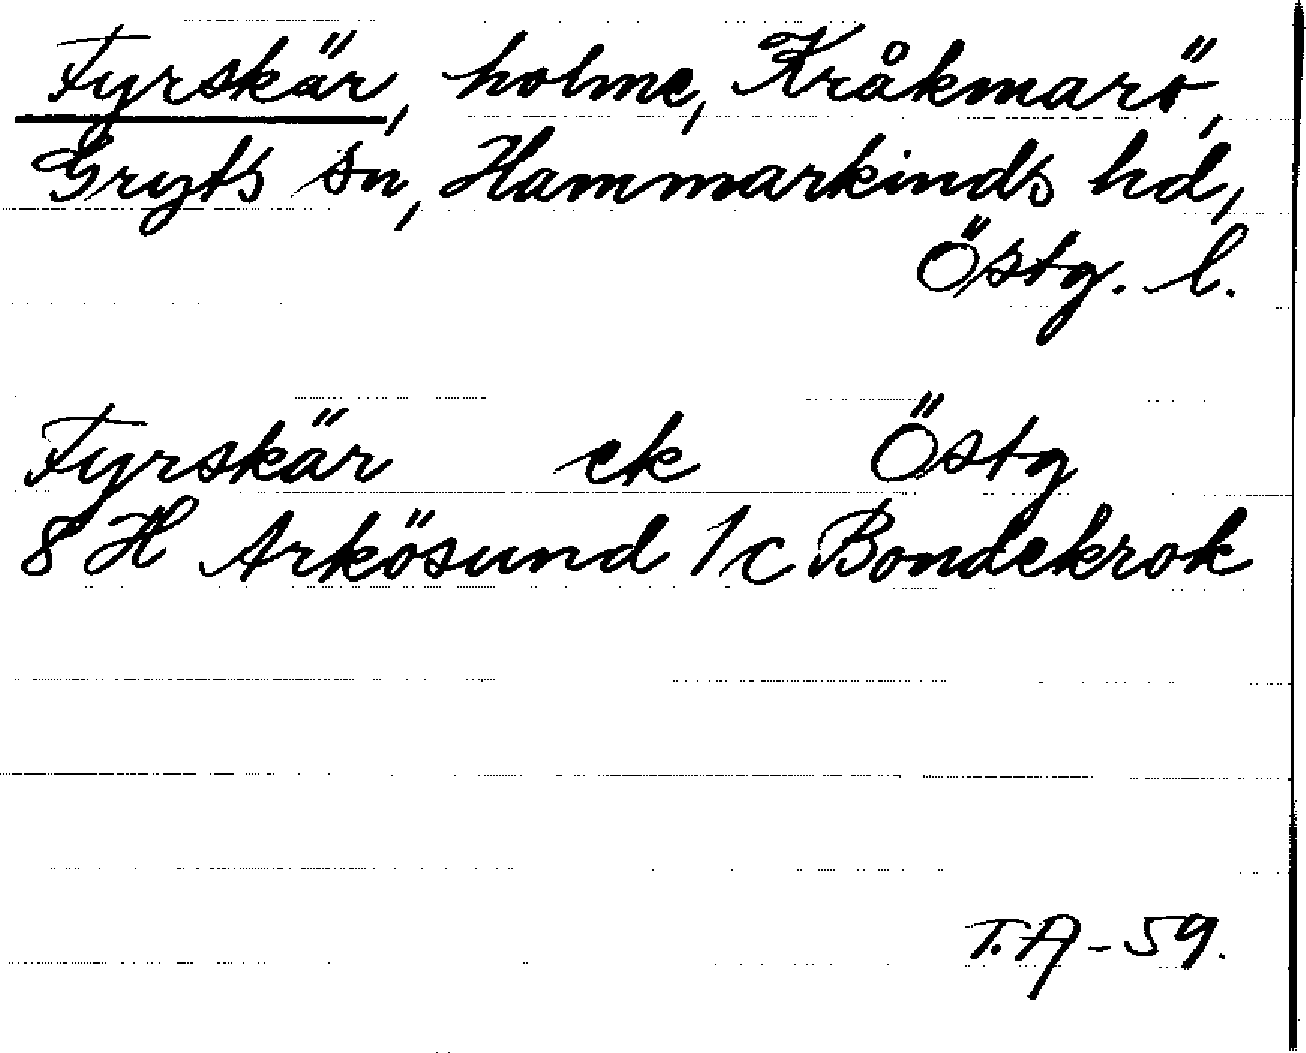 Fyrskär, holme, Kråkmarö,
Gryts sn, Hammarkinds hd,
Östg. l.
Fyrskär ek Östg
8 H Arkösund 1/c Bondekrok
T.A-59.